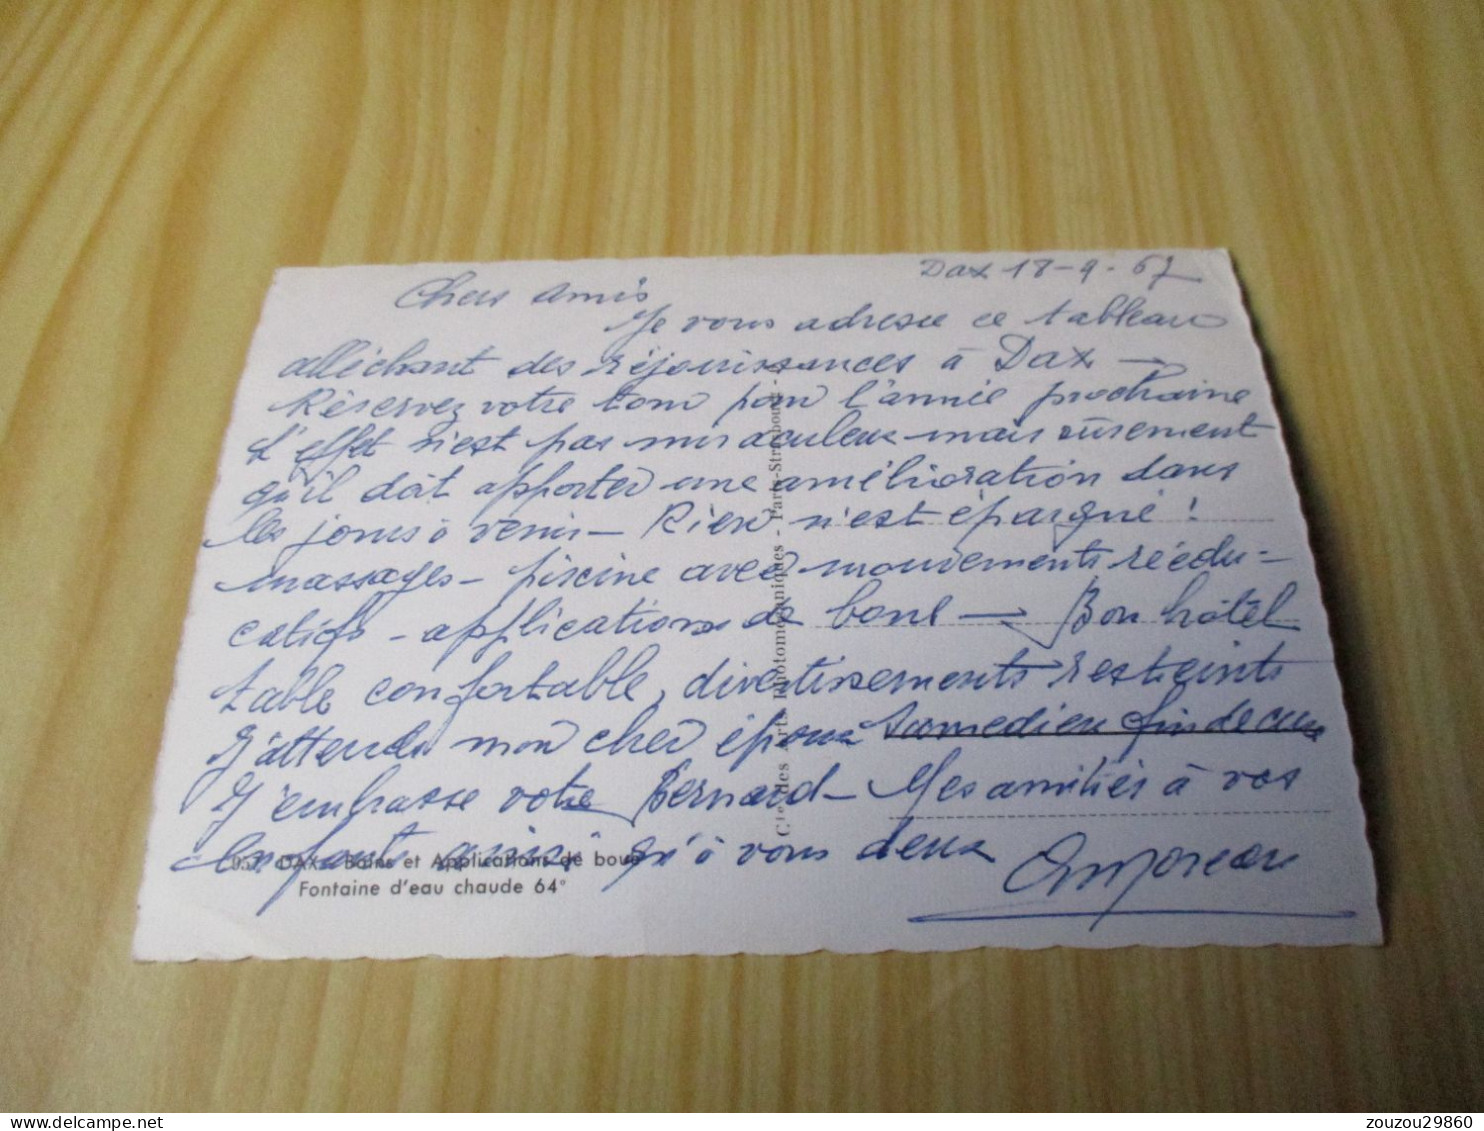 Dax 18-9-67
Chers amis
Je vous adresse ce tableau
alléchant des réjouissances à Dax —
Réservez votre tour pour l'année prochaine
L'effet n'est pas miraculeux mais sûrement
qu'il doit apporter une amélioration dans
les jours à venir — Rien n'est épargné !
massages — piscine avec mouvements réédu-
catifs — applications de boue — Bon hôtel
table confortable, divertissements restreints
J'attends mon cher époux Samedi en fin de cure
J'embrasse votre Bernard — Mes amitiés à vos
enfants ainsi qu'à vous deux
DAX - Bains et Applications de boue
Fontaine d'eau chaude 64°
Cie des Arts Photomécaniques - Paris-Strasbourg
zouzou29860